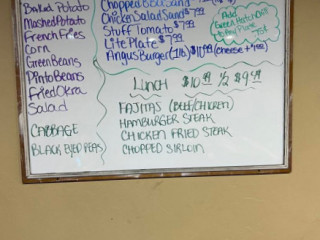 Baked Potato
Mashed Potatos
French Fries
Corn
Green Beans
Pinto Beans
Fried Okra
Salad
CABBAGE
BLACK EYED PEAS
Chopped
Chicken Salad Sand $7.99
Stuff Tomato $7.99
Lite Plate $7.99
Angus Burger (1/2 lb) $10.99 (cheese +
Add
Green Hatch Chili
to Any Plate
75¢
LUNCH $10.99 1/2 $9.99
FAJITAS (BEEF/CHICKEN)
HAMBURGER STEAK
CHICKEN FRIED STEAK
CHOPPED SIRLOIN